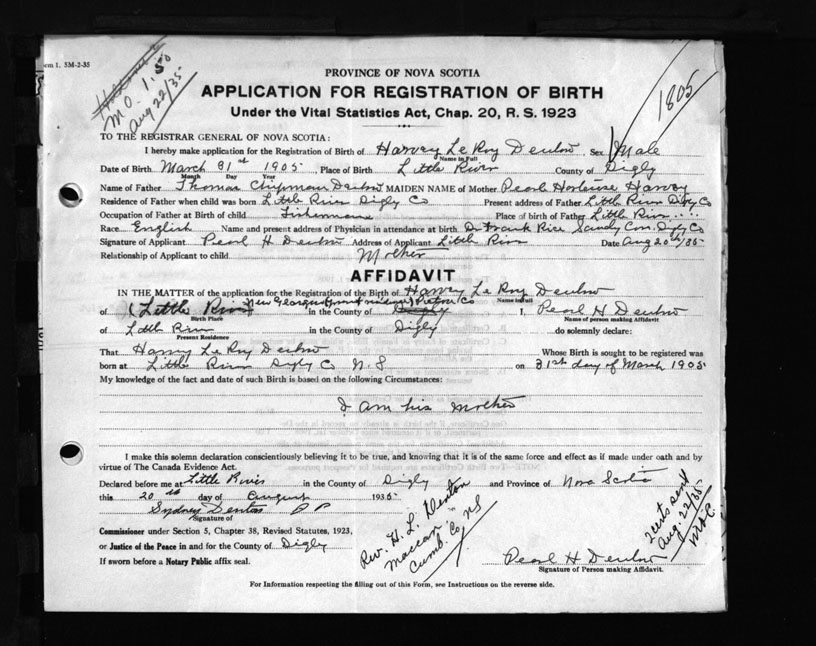 orm 1. 5M-2-35
M.O. 1.50
Aug 22/35
1805
PROVINCE OF NOVA SCOTIA
APPLICATION FOR REGISTRATION OF BIRTH
Under the Vital Statistics Act, Chap. 20, R. S. 1923
TO THE REGISTRAR GENERAL OF NOVA SCOTIA:
I hereby make application for the Registration of Birth of Harvey Le Roy Denton Sex Male
Name in Full
Date of Birth March 31st 1905 Place of Birth Little River County of Digby
Month Day Year
Name of Father Thomas Chipman Denton MAIDEN NAME of Mother Pearl Hortense Harvey
Residence of Father when child was born Little River Digby Co Present address of Father Little River Digby Co
Occupation of Father at Birth of child Fisherman Place of birth of Father Little River
Race English Name and present address of Physician in attendance at birth Dr Frank Rice Sandy Cove Digby Co
Signature of Applicant Pearl H Denton Address of Applicant Little River Date Aug 20th/35
Relationship of Applicant to child Mother
AFFIDAVIT
IN THE MATTER of the application for the Registration of the Birth of Harvey Le Roy Denton
Name in Full
New Pictou Co
of (Little River in the County of Digby I, Pearl H Denton
Birth Place Name of person making Affidavit
of Little River in the County of Digby do solemnly declare:
Present Residence
That Harvey Le Roy Denton Whose Birth is sought to be registered was
born at Little River Digby Co N.S on 31st day of March 1905
My knowledge of the fact and date of such Birth is based on the following Circumstances:
I am his mother
I make this solemn declaration conscientiously believing it to be true, and knowing that it is of the same force and effect as if made under oath and by
virtue of The Canada Evidence Act.
Declared before me at Little River in the County of Digby and Province of Nova Scotia
this 20th day of August 1935
Sydney Denton
Signature of
Commissioner under Section 5, Chapter 38, Revised Statutes, 1923,
or Justice of the Peace in and for the County of Digby
If sworn before a Notary Public affix seal.
Rev. H. L. Denton
Maccan
Cumb. Co. NS
2 certs sent
Aug 22/35
Pearl H Denton
Signature of Person making Affidavit.
For Information respecting the filling out of this Form, see Instructions on the reverse side.